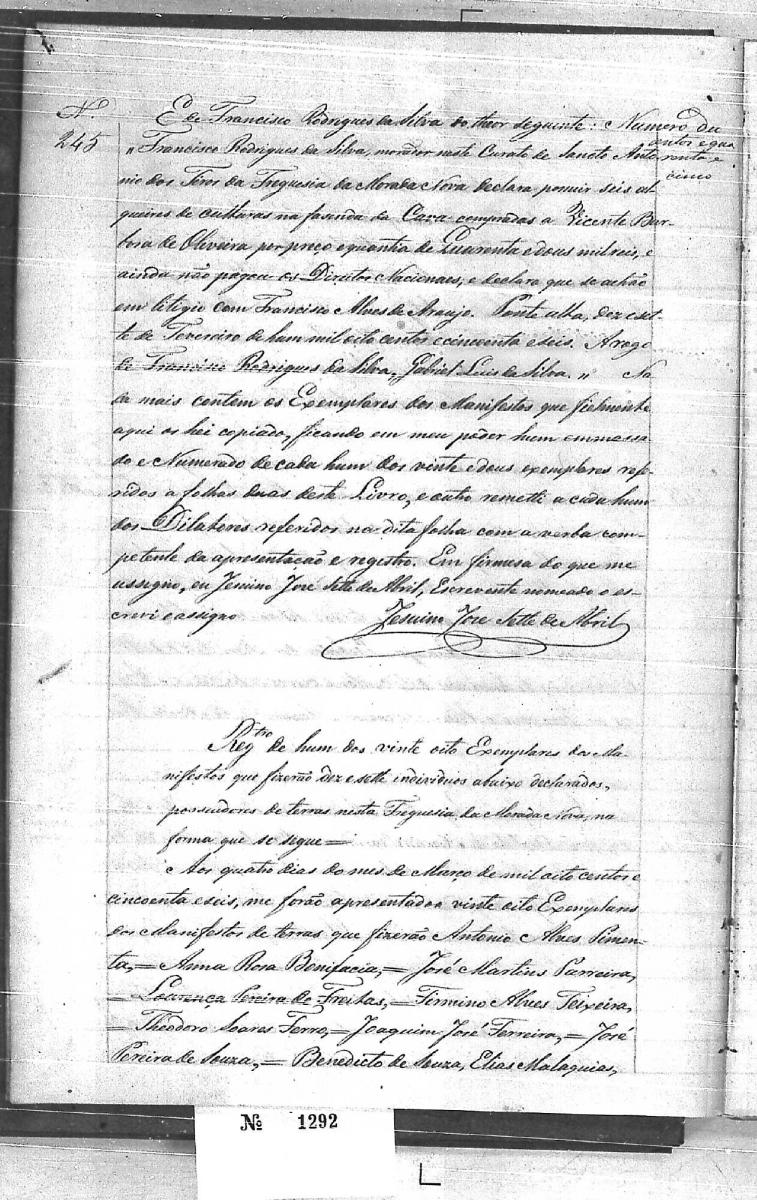 N.º
245
E de Francisco Rodrigues da Silva do theor seguinte: Numero du
entos e qua
renta e
cinco
„ Francisco Rodrigues da Silva, morador neste Curato de Sancto Anto
nio dos Tiros da Freguesia da Morada Nova declara possuir seis al
queires de culturas na fasenda da Cava compradas a Vicente Bar-
bosa de Oliveira por preço e quantia de Quarenta e dous mil reis, e
ainda não pagou os Direitos Nacionaes, e declara que se achão
em litigio com Francisco Alves de Araujo. Ponte alta, dez e set-
te de Fevereiro de hum mil oito centos e cincoenta e seis. Arogo
de Francisco Rodrigues da Silva, Gabriel Luis da Silva. „ Na
da mais contem os Exemplares dos Manifestos que fielmente
aqui os hei copiado, ficando em meu pôder hum emmassa
do e Numerado de cada hum dos vinte e dous exemplares refe-
ridos a folhas duas deste Livro, e outro remetti a cada hum
dos Dilatores referidos na dita folha com a verba com-
petente da apresentação e registro. Em firmesa do que me
assigno, eu Jesuino Jose Sette de Abril, Escrevente nomeado o es-
crevi e assigno
Jesuino Jose Sette de Abril
Reg.tro de hum dos vinte oito Exemplares dos Ma-
nifestos que fizerão dez e sette individuos abaixo declarados,
possuidores de terras nesta Freguesia da Morada Nova, na
forma que se segue =
Aos quatro dias do mes de Março de mil oito centos e
cincoenta e seis, me forão apresentados vinte oito Exemplares
dos Manifestos de terras que fizerão Antonio Alves Pimen-
ta, = Anna Rosa Bonifacia, = José Martins Parreira,
= Lourença Pereira de Freitas, = Firmino Alves Teixeira,
= Theodoro Soares Ferro, = Joaquim José Ferreira, = José
Pereira de Souza, = Benedicto de Souza, Elias Malaquias,
Nº 1292